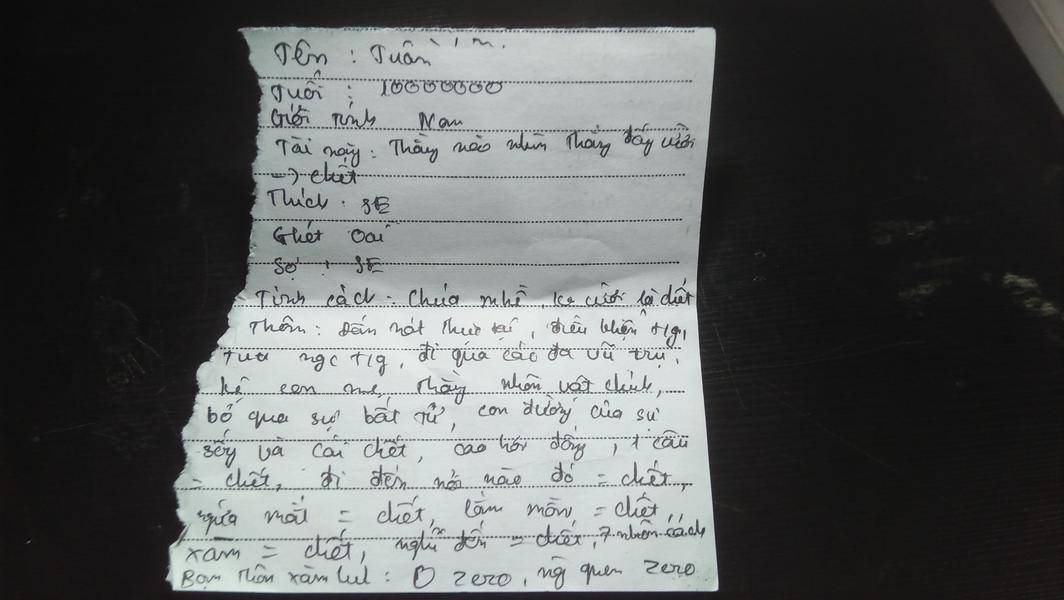 Tên : Tuân
Tuổi : 10000000
Giới tính Nam
Tài này : Thằng nào nhìn thằng đấy cười
-> chết
Thích : SE
Ghét Oai
Sợ : SE
Tính cách : Chúa nhề, kẻ cười là chết
Thêm : đấm nát thực tại, điều khiện t/g,
tua ngc t/g, đi qua các đa vũ trụ,
kệ con mẹ thằng nhân vật chính,
bỏ qua sự bất tử, con đường của sự
sống và cái chết, cao hơn đống, 1 câu
= chết, đi đến nơi nào đó = chết,
rửa mắt = chết, lằm mồn = chết,
xàm = chết, nghĩ đến = chết, 7 nhân cách
Bạn thân xàm lul : O zero, ng quen zero